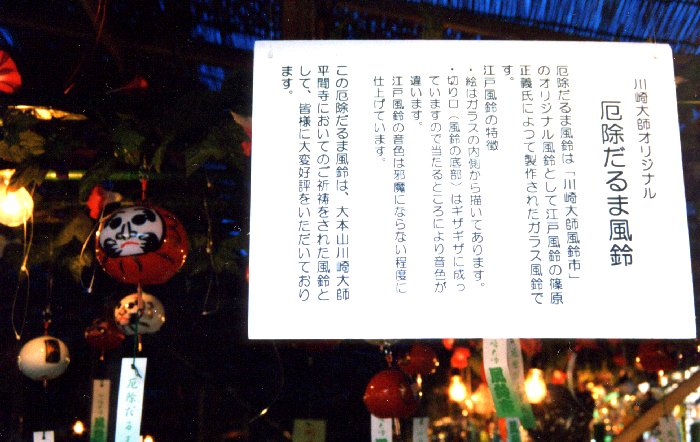 川崎大師オリジナル
厄除だるま風鈴
厄除だるま風鈴は「川崎大師風鈴市」
のオリジナル風鈴として江戸風鈴の篠原
正義氏によって製作されたガラス風鈴で
す。
江戸風鈴の特徴
・絵はガラスの内側から描いてあります。
・切り口（風鈴の底部）はギザギザに成っ
ていますので当たるところにより音色が
違います。
江戸風鈴の音色は邪魔にならない程度に
仕上げています。
この厄除だるま風鈴は、大本山川崎大師
平間寺においてのご祈祷をされた風鈴と
して、皆様に大変好評をいただいており
ます。
厄除だるま